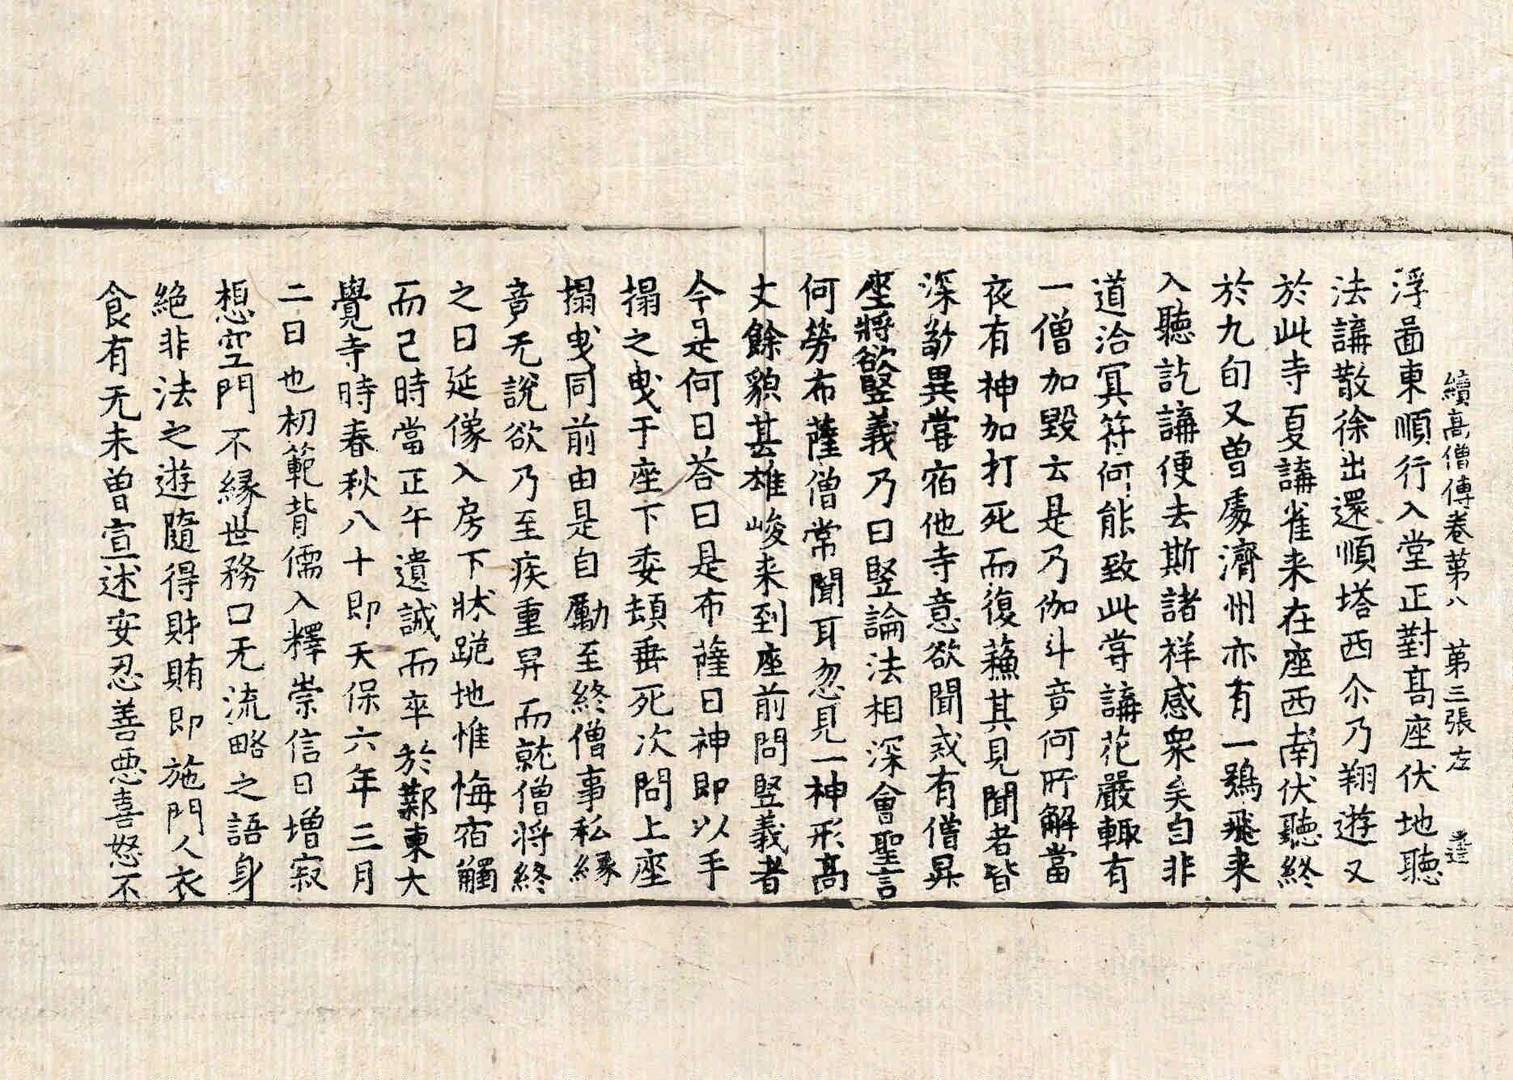 續高僧傳卷第八　第三張左
浮啚東順行入堂正對髙座伏地聽
法講散徐出還順塔西尒乃翔遊又
於此寺夏講雀来在座西南伏聽終
於九旬又曽處濟州亦有一鵶飛来
入聽訖講便去斯諸祥感衆矣自非
道洽冥符何能致此甞講花嚴輙有
一僧加毀云是乃伽斗竟何所解當
夜有神加打死而復蘓其見聞者皆
深敬異甞宿他寺意欲聞或有僧昇
座將欲竪義乃曰竪論法相深會聖言
何勞布薩僧常聞耳忽見一神形高
丈餘貌甚雄峻来到座前問竪義者
今是何日荅曰是布薩日神即以手
搨之曳于座下委頓垂死次問上座
搨曳同前由是自勵至終僧事私緣
竟无說欲乃至疾重舁而就僧将終
之日延像入房下牀跪地惟悔宿觸
而已時當正午遺誡而卒於鄴東大
覺寺時春秋八十即天保六年三月
二日也初範背儒入釋崇信日增寂
想空門不緣世務口无流略之語身
絕非法之遊隨得財賄即施門人衣
食有无未曽宣述安忍善惡喜怒不